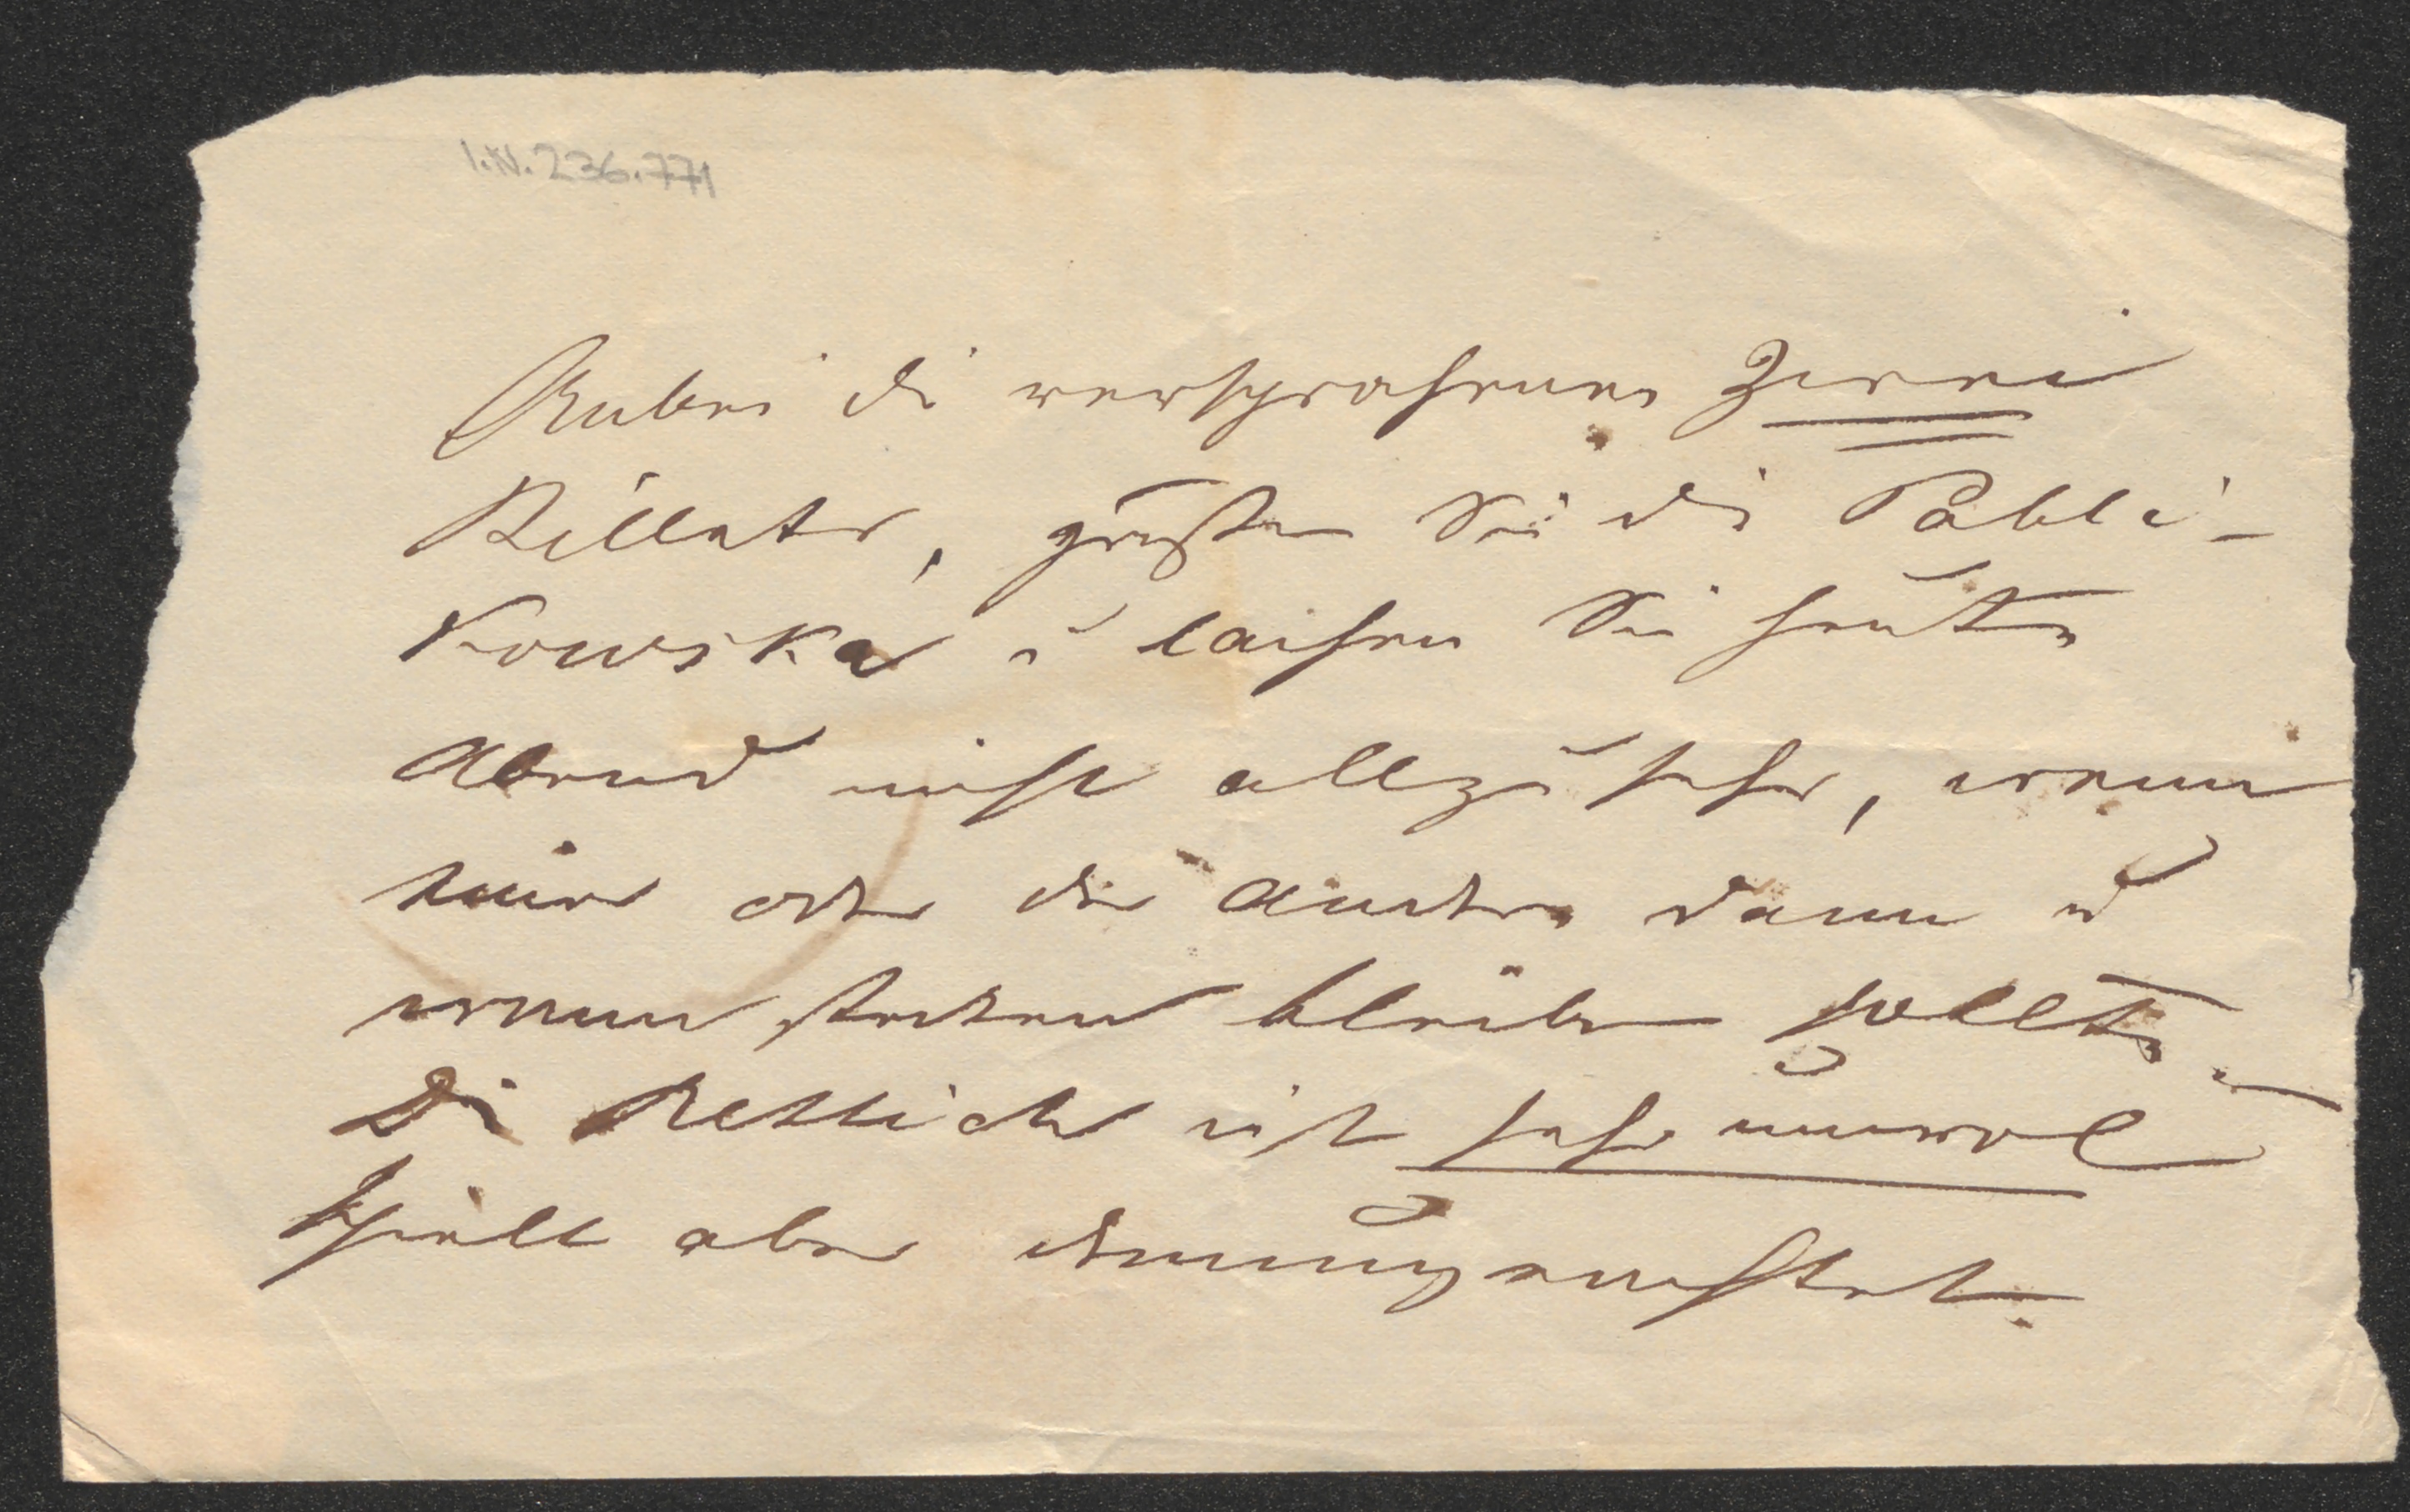 I.N. 236.771
Anbei die versprochenen Zwei
Billets, grüßen Sie die Pabli-
kowska u lachen Sie heute
Abend nicht allzu sehr, wenn
einer oder der Andere dann u
wenn stecken bleiben sollte
Die Rettich ist sehr unwol
spielt aber demungeachtet